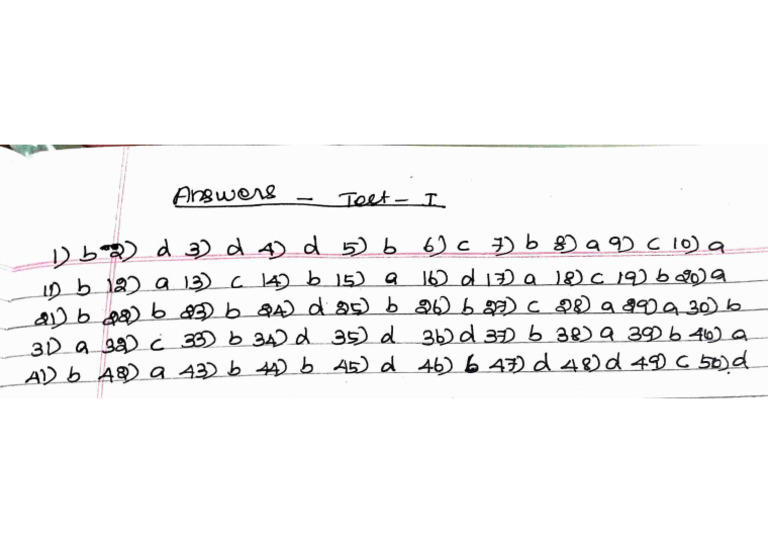 Answers - Test - I
1) b 2) d 3) d 4) d 5) b 6) c 7) b 8) a 9) c 10) a
11) b 12) a 13) c 14) b 15) a 16) d 17) a 18) c 19) b 20) a
21) b 22) b 23) b 24) d 25) b 26) b 27) c 28) a 29) a 30) b
31) a 32) c 33) b 34) d 35) d 36) d 37) b 38) a 39) b 40) a
41) b 42) a 43) b 44) b 45) d 46) b 47) d 48) d 49) c 50) d